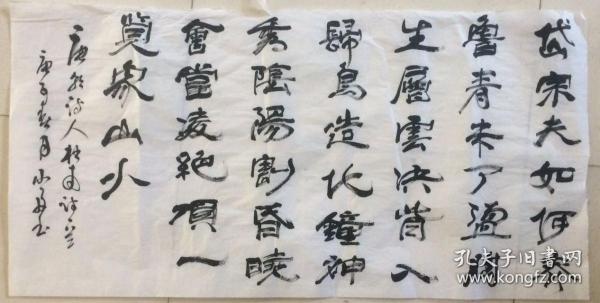 岱宗夫如何齊
魯青未了盪胸
生層雲決眥入
歸鳥造化鐘神
秀陰陽割昏曉
會當凌絕頂一
覽衆山小
唐朝诗人杜甫诗
庚子春月小书
孔夫子旧书网
www.kongfz.com